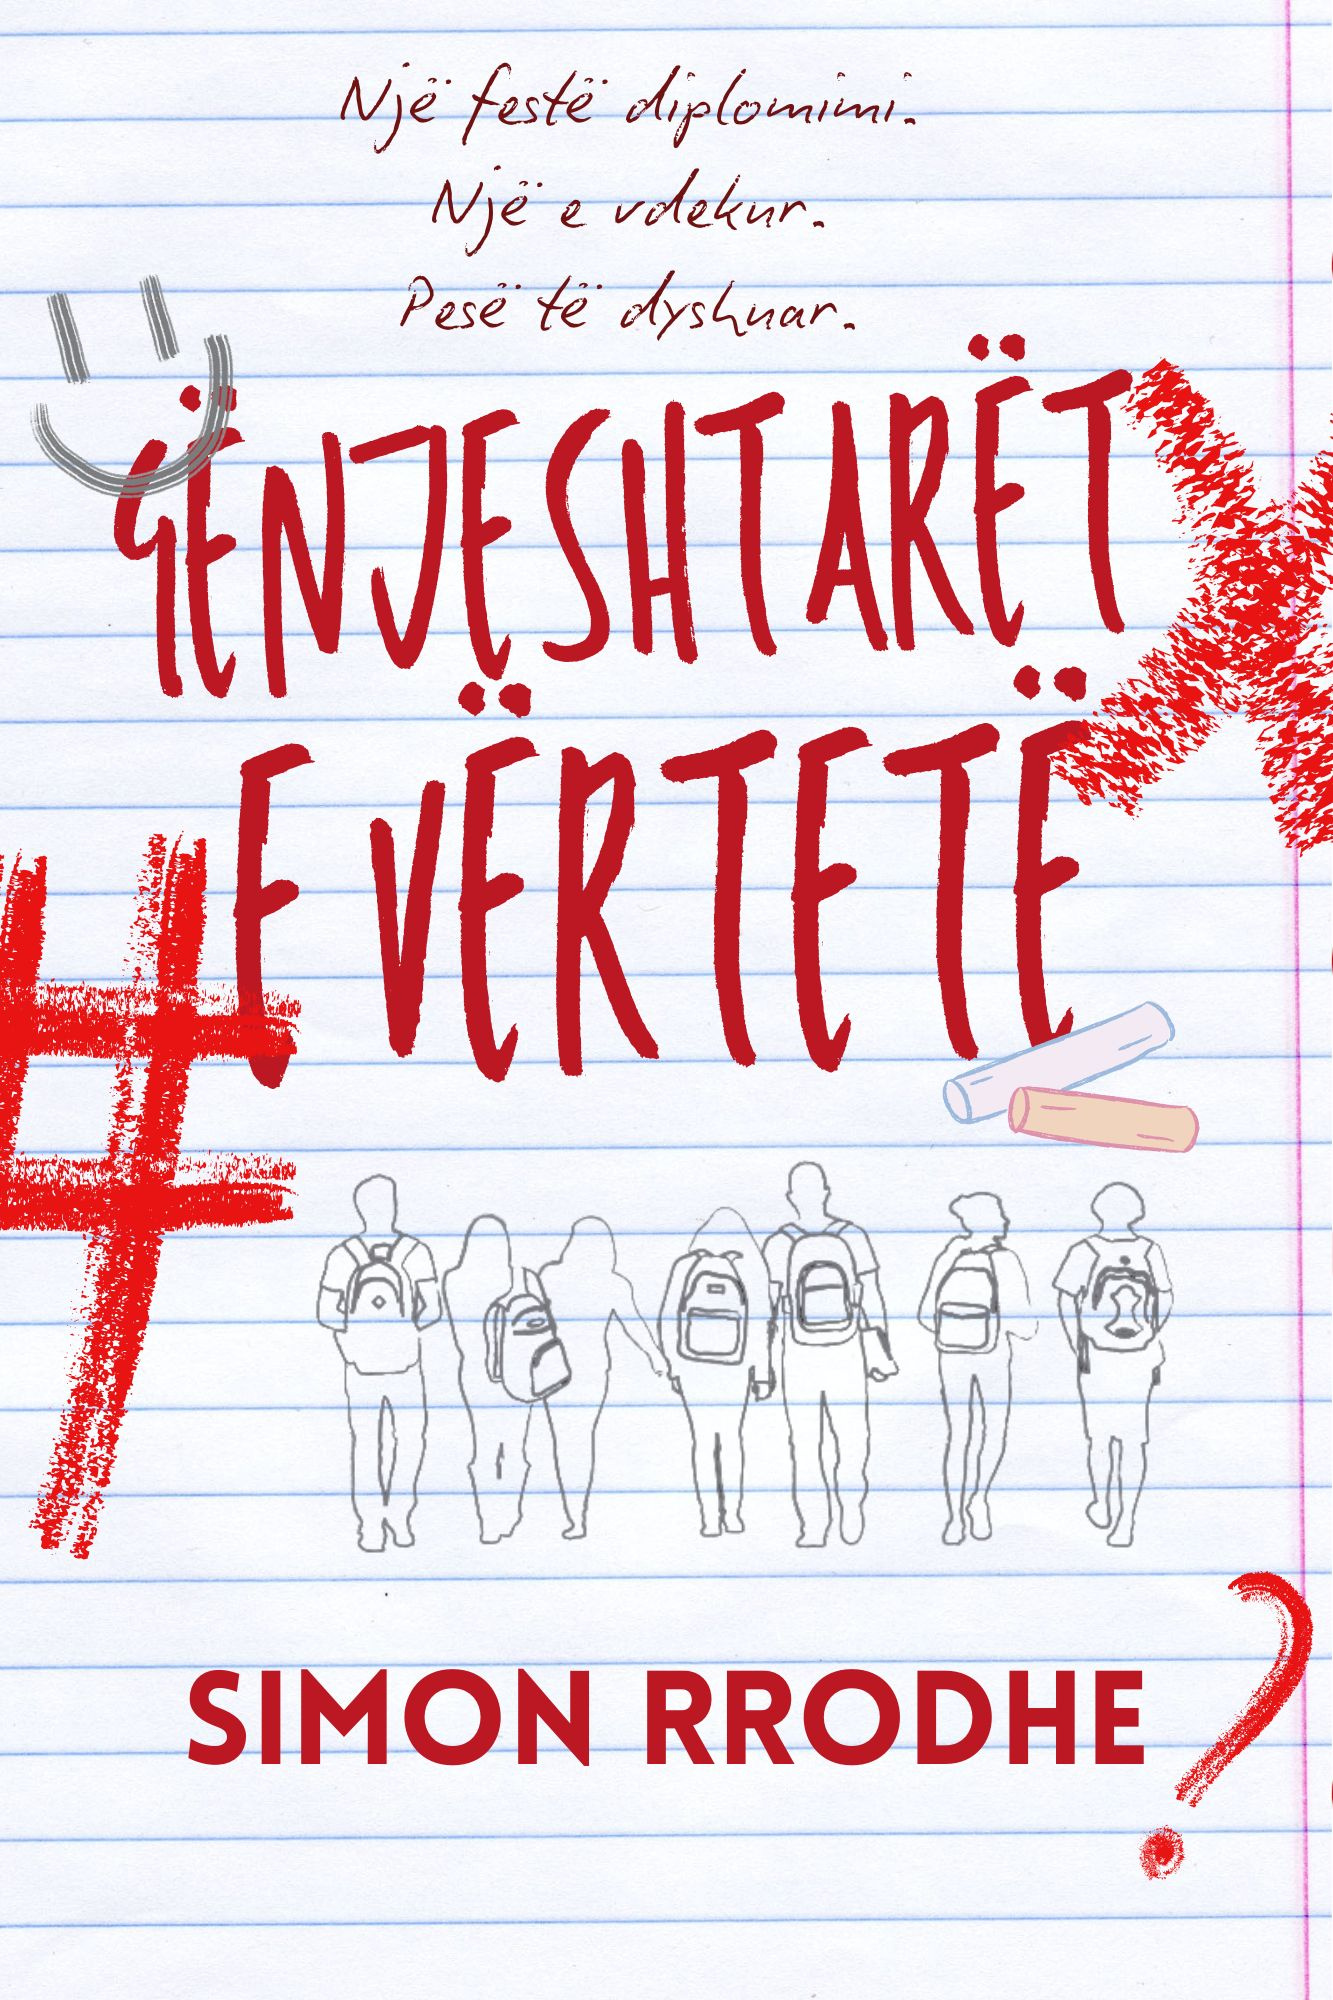 Një festë diplomimi.
Një e vdekur.
Pesë të dyshuar.
GËNJESHTARËT
E VËRTETË
SIMON RRODHE